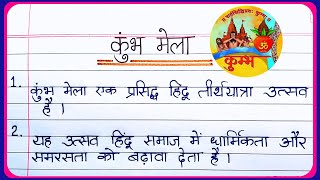 कुंभ मेला
कुम्भ
1. कुंभ मेला एक प्रसिद्ध हिंदू तीर्थयात्रा उत्सव
है ।
2. यह उत्सव हिंदू समाज में धार्मिकता और
समरसता को बढ़ावा देता है ।